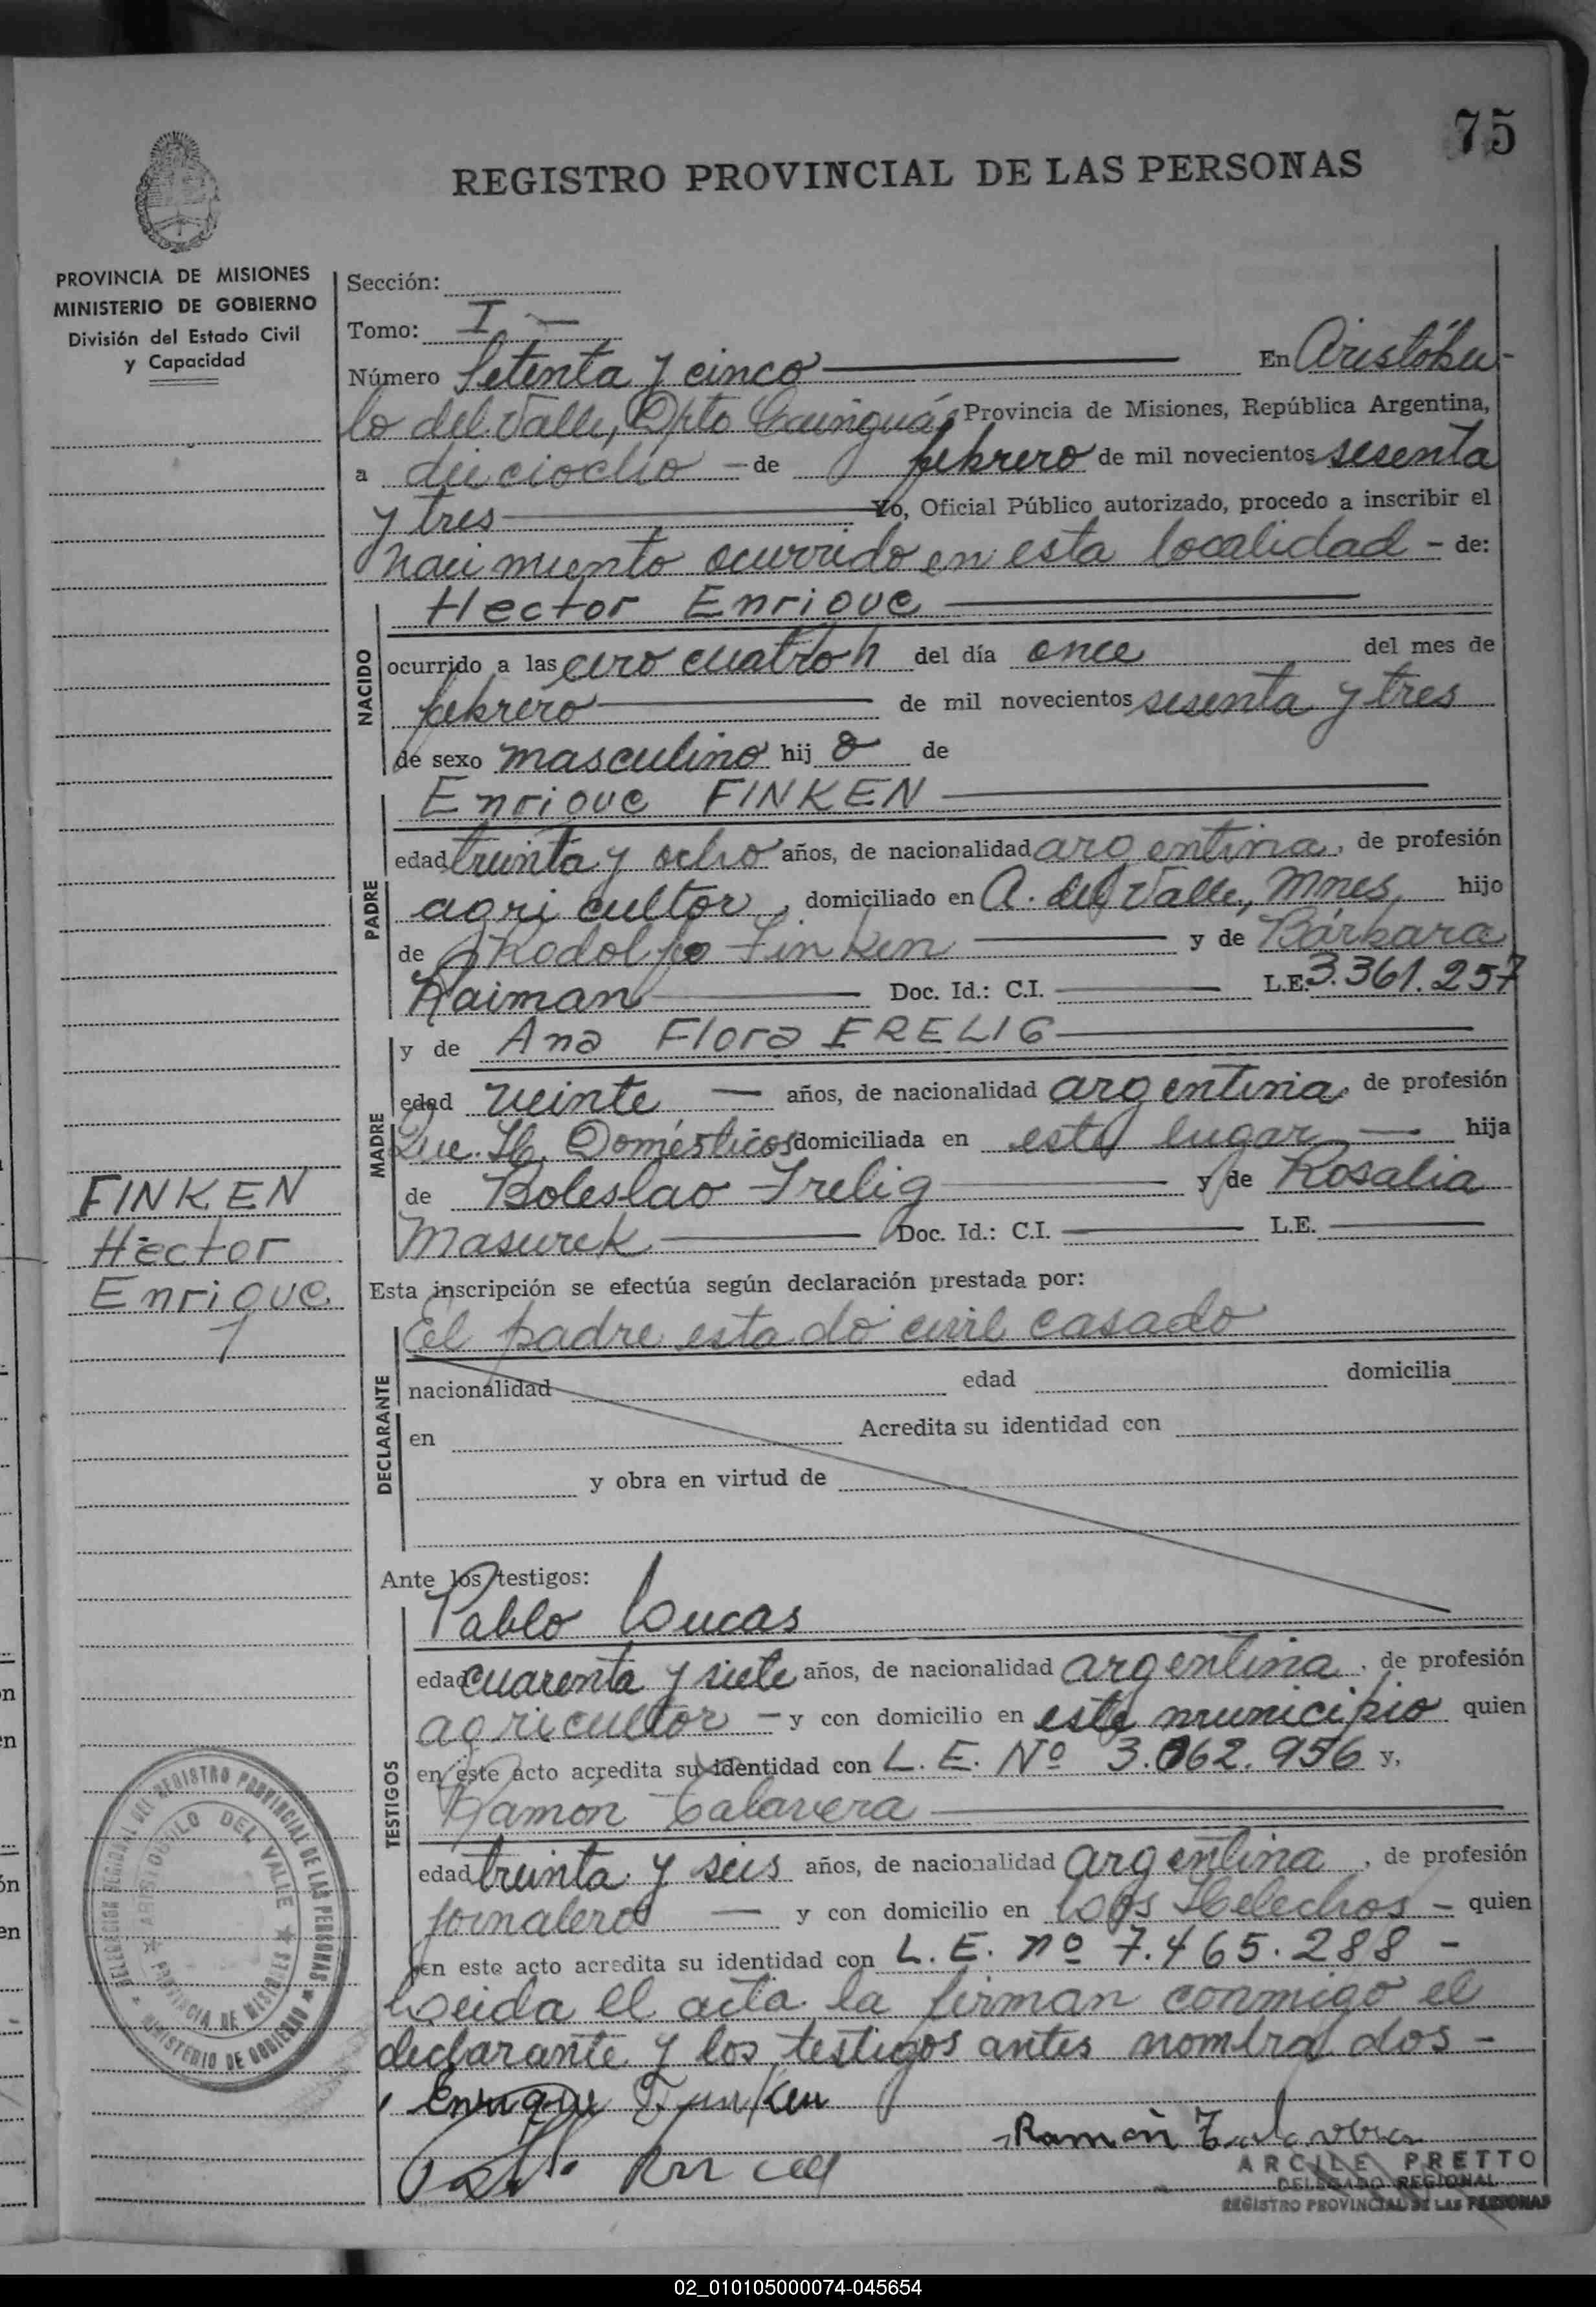 75
REGISTRO PROVINCIAL DE LAS PERSONAS
PROVINCIA DE MISIONES
MINISTERIO DE GOBIERNO
División del Estado Civil
y Capacidad
Sección:
Tomo: I -
Número Setenta y cinco En Aristóbu-
lo del Valle, Dpto Cainguás Provincia de Misiones, República Argentina,
a dieciocho - de febrero de mil novecientos sesenta
y tres Yo, Oficial Público autorizado, procedo a inscribir el
nacimiento ocurrido en esta localidad - de:
NACIDO
Hector Enrique
ocurrido a las cero cuatro h del día once del mes de
febrero de mil novecientos sesenta y tres
de sexo masculino hij o de
PADRE
Enrique FINKEN
edad treinta y ocho años, de nacionalidad argentina, de profesión
agricultor, domiciliado en A. del Valle, Mnes, hijo
de Rodolfo Finken y de Bárbara
Raiman Doc. Id.: C.I. L.E. 3.361.257
MADRE
y de Ana Flora FRELIG
edad veinte - años, de nacionalidad argentina, de profesión
Que. Domésticos domiciliada en este lugar - hija
de Boleslao Frelig y de Rosalia
Masurek Doc. Id.: C.I. L.E.
FINKEN
Hector
Enrique
Esta inscripción se efectúa según declaración prestada por:
DECLARANTE
El padre estado civil casado
nacionalidad edad domicilia
en Acredita su identidad con
y obra en virtud de
Ante los testigos:
TESTIGOS
Pablo Lucas
edad cuarenta y siete años, de nacionalidad argentina, de profesión
agricultor - y con domicilio en este municipio quien
en este acto acredita su identidad con L. E. Nº 3.062.956 y,
Ramón Talavera
edad treinta y seis años, de nacionalidad argentina, de profesión
jornalero - y con domicilio en Los Helechos - quien
en este acto acredita su identidad con L. E. nº 7.465.288 -
Leida el acta la firman conmigo el
declarante y los testigos antes nombrados -
Enrique Finken
Ramón Talavera
ARCILE PRETTO
DELEGADO REGIONAL
REGISTRO PROVINCIAL DE LAS PERSONAS
DELEGACION REGIONAL DEL REGISTRO PROVINCIAL DE LAS PERSONAS
MINISTERIO DE GOBIERNO
ARISTOBULO DEL VALLE
PROVINCIA DE MISIONES
02_010105000074-045654